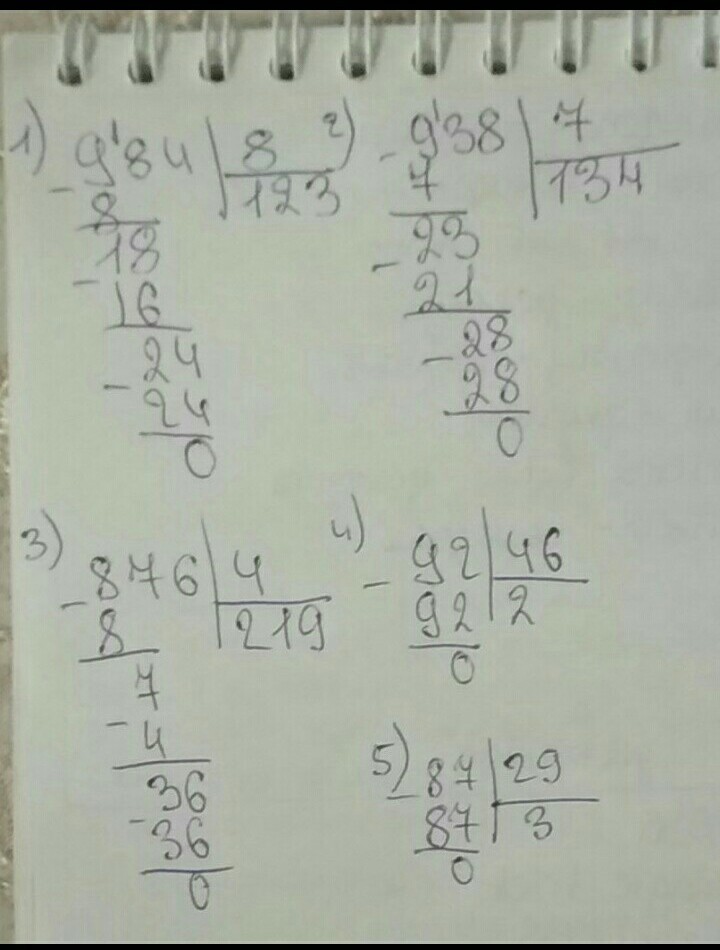 1) 9'84 | 8
- 8 | 123
18
- 16
24
- 24
0
2) - 9'38 | 7
7 | 134
23
- 21
28
- 28
0
3) - 876 | 4
8 | 219
7
- 4
36
- 36
0
4) - 92 | 46
92 | 2
0
5) - 87 | 29
87 | 3
0